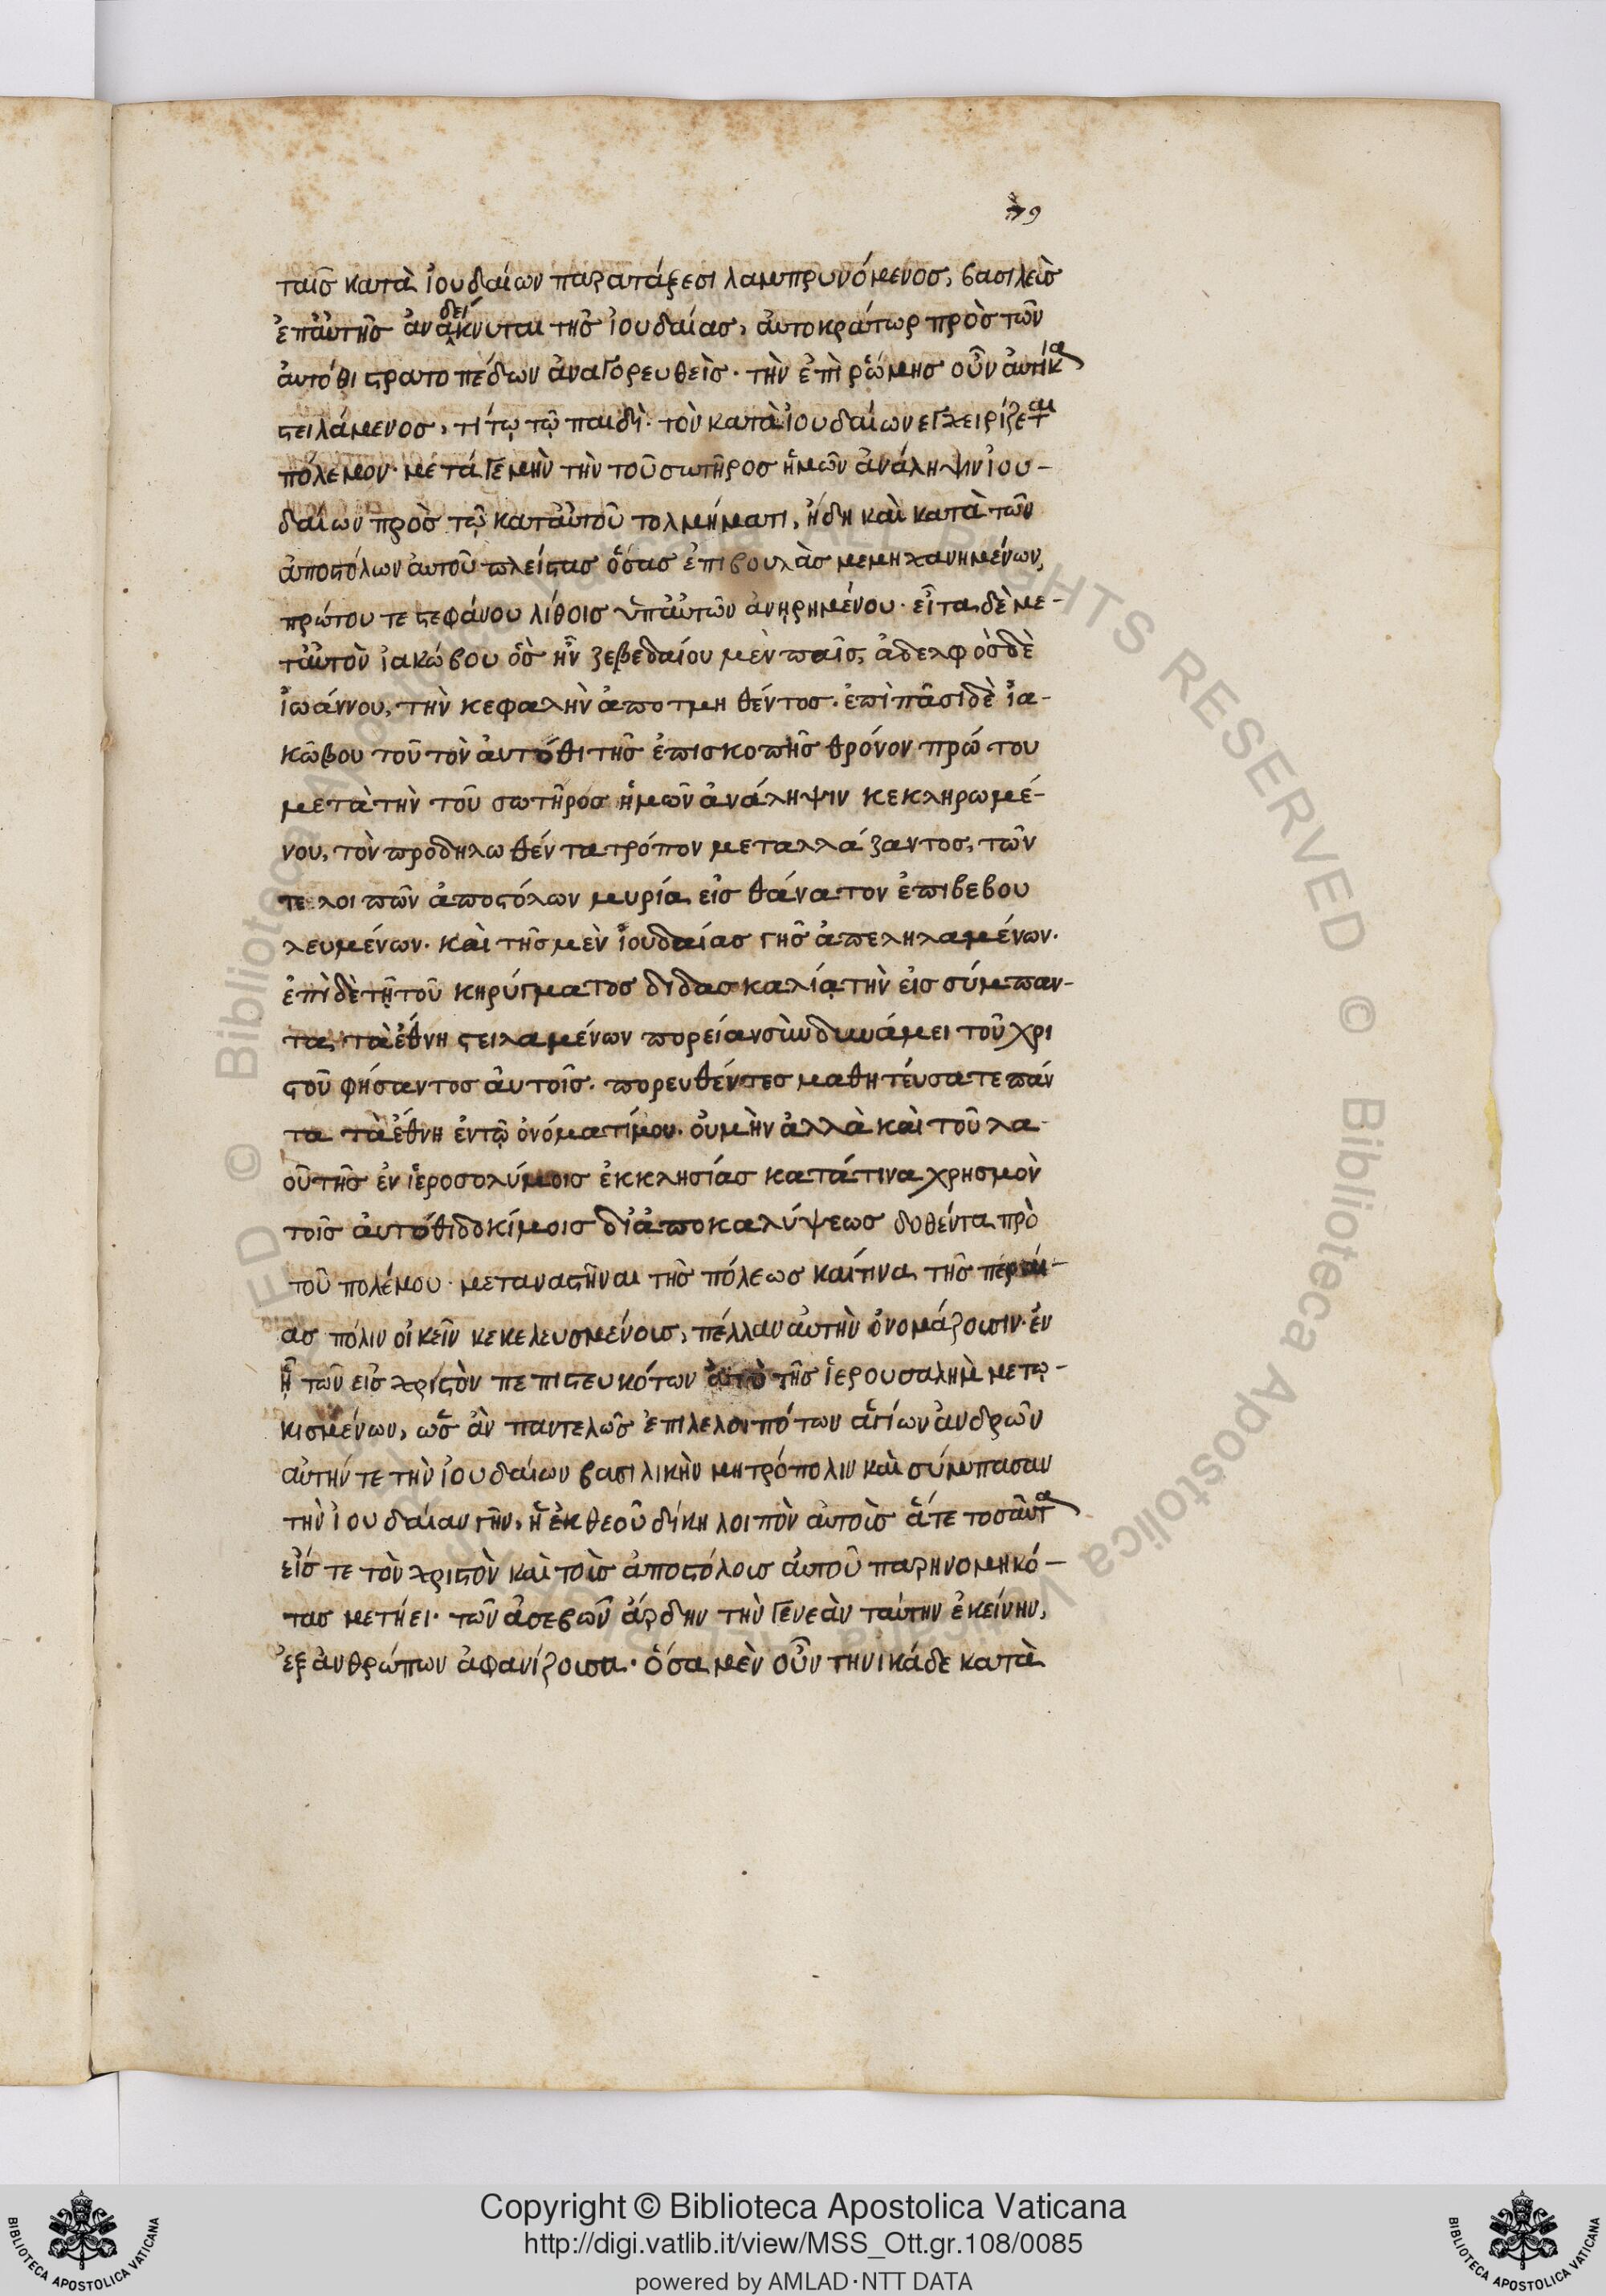 79
ταῖς κατὰ ἰουδαίων παρατάξεσι λαμπρυνόμενος, βασιλεὺς
ἐπ αὐτῆς ἀναδείκνυται τῆς ἰουδαίας, αὐτοκράτωρ πρὸς τῶν
αὐτόθι στρατοπέδων ἀναγορευθεὶς· τὴν ἐπὶ ῥώμης οὖν αὐτίκα
στειλάμενος, τίτῳ τῷ παιδὶ· τὸν κατὰ ἰουδαίων εγχειρίζεται
πόλεμον· μετά γε μὴν τὴν τοῦ σωτῆρος ἡμῶν ἀνάληψιν ἰου-
δαίων πρὸς τῷ κατ αὐτοῦ τολμήματι, ἤδη καὶ κατὰ τῶν
ἀποστόλων αὐτοῦ πλείστας ὅσας ἐπιβουλὰς μεμηχανημένων,
πρώτου τε στεφάνου λίθοις ὑπ αὐτῶν ἀνῃρημένου· εἶτα δὲ με-
τ αὐτὸν ἰακώβου ὃς ἦν ζεβεδαίου μὲν παῖς, ἀδελφὸς δὲ
ἰωάννου, τὴν κεφαλὴν ἀποτμηθέντος· ἐπὶ πᾶσι δὲ ἰα-
κώβου τοῦ τὸν αὐτόθι τῆς ἐπισκοπῆς θρόνον πρώτου
μετὰ τὴν τοῦ σωτῆρος ἡμῶν ἀνάληψιν κεκληρωμέ-
νου, τὸν προδηλωθέντα τρόπον μεταλλάξαντος, τῶν
τε λοιπῶν ἀποστόλων μυρία εἰς θάνατον ἐπιβεβου
λευμένων· καὶ τῆς μὲν ἰουδαίας γῆς ἀπεληλαμένων·
ἐπὶ δὲ τῇ τοῦ κηρύγματος διδασκαλίᾳ τὴν εἰς σύμπαν-
τα τὰ ἔθνη στειλαμένων πορείαν σὺν δυνάμει τοῦ χρι
στοῦ φήσαντος αὐτοῖς· πορευθέντες μαθητεύσατε πάν
τα τὰ ἔθνη ἐν τῷ ὀνόματί μου· οὐ μὴν ἀλλὰ καὶ τοῦ λα-
οῦ τῆς ἐν ἱεροσολύμοις ἐκκλησίας κατά τινα χρησμὸν
τοῖς αὐτόθι δοκίμοις δι ἀποκαλύψεως δοθέντα πρὸ
τοῦ πολέμου· μεταναστῆναι τῆς πόλεως καί τινα τῆς περαί-
ας πόλιν οἰκεῖν κεκελευσμένοις, πέλλαν αὐτὴν ὀνομάζουσιν· ἐν
ᾗ τῶν εἰς χριστὸν πεπιστευκότων ἀπὸ τῆς ἱερουσαλὴμ μετῳ-
κισμένων, ὡς ἂν παντελῶς ἐπιλελοιπότων ἁγίων ἀνδρῶν
αὐτήν τε τὴν ἰουδαίων βασιλικὴν μητρόπολιν καὶ σύμπασαν
τὴν ἰουδαίαν γῆν, ἡ ἐκ θεοῦ δίκη λοιπὸν αὐτοὺς ἅτε τοσαῦτα
εἴς τε τὸν χριστὸν καὶ τοὺς ἀποστόλους αὐτοῦ παρηνομηκό-
τας μετῄει· τῶν ἀσεβῶν ἄρδην τὴν γενεὰν ταύτην ἐκείνην,
ἐξ ἀνθρώπων ἀφανίζουσα· ὅσα μὲν οὖν τηνικάδε κατὰ
© Biblioteca Apostolica Vaticana ALL RIGHTS RESERVED
Copyright © Biblioteca Apostolica Vaticana
http://digi.vatlib.it/view/MSS_Ott.gr.108/0085
powered by AMLAD·NTT DATA
BIBLIOTECA APOSTOLICA VATICANA
BIBLIOTECA APOSTOLICA VATICANA